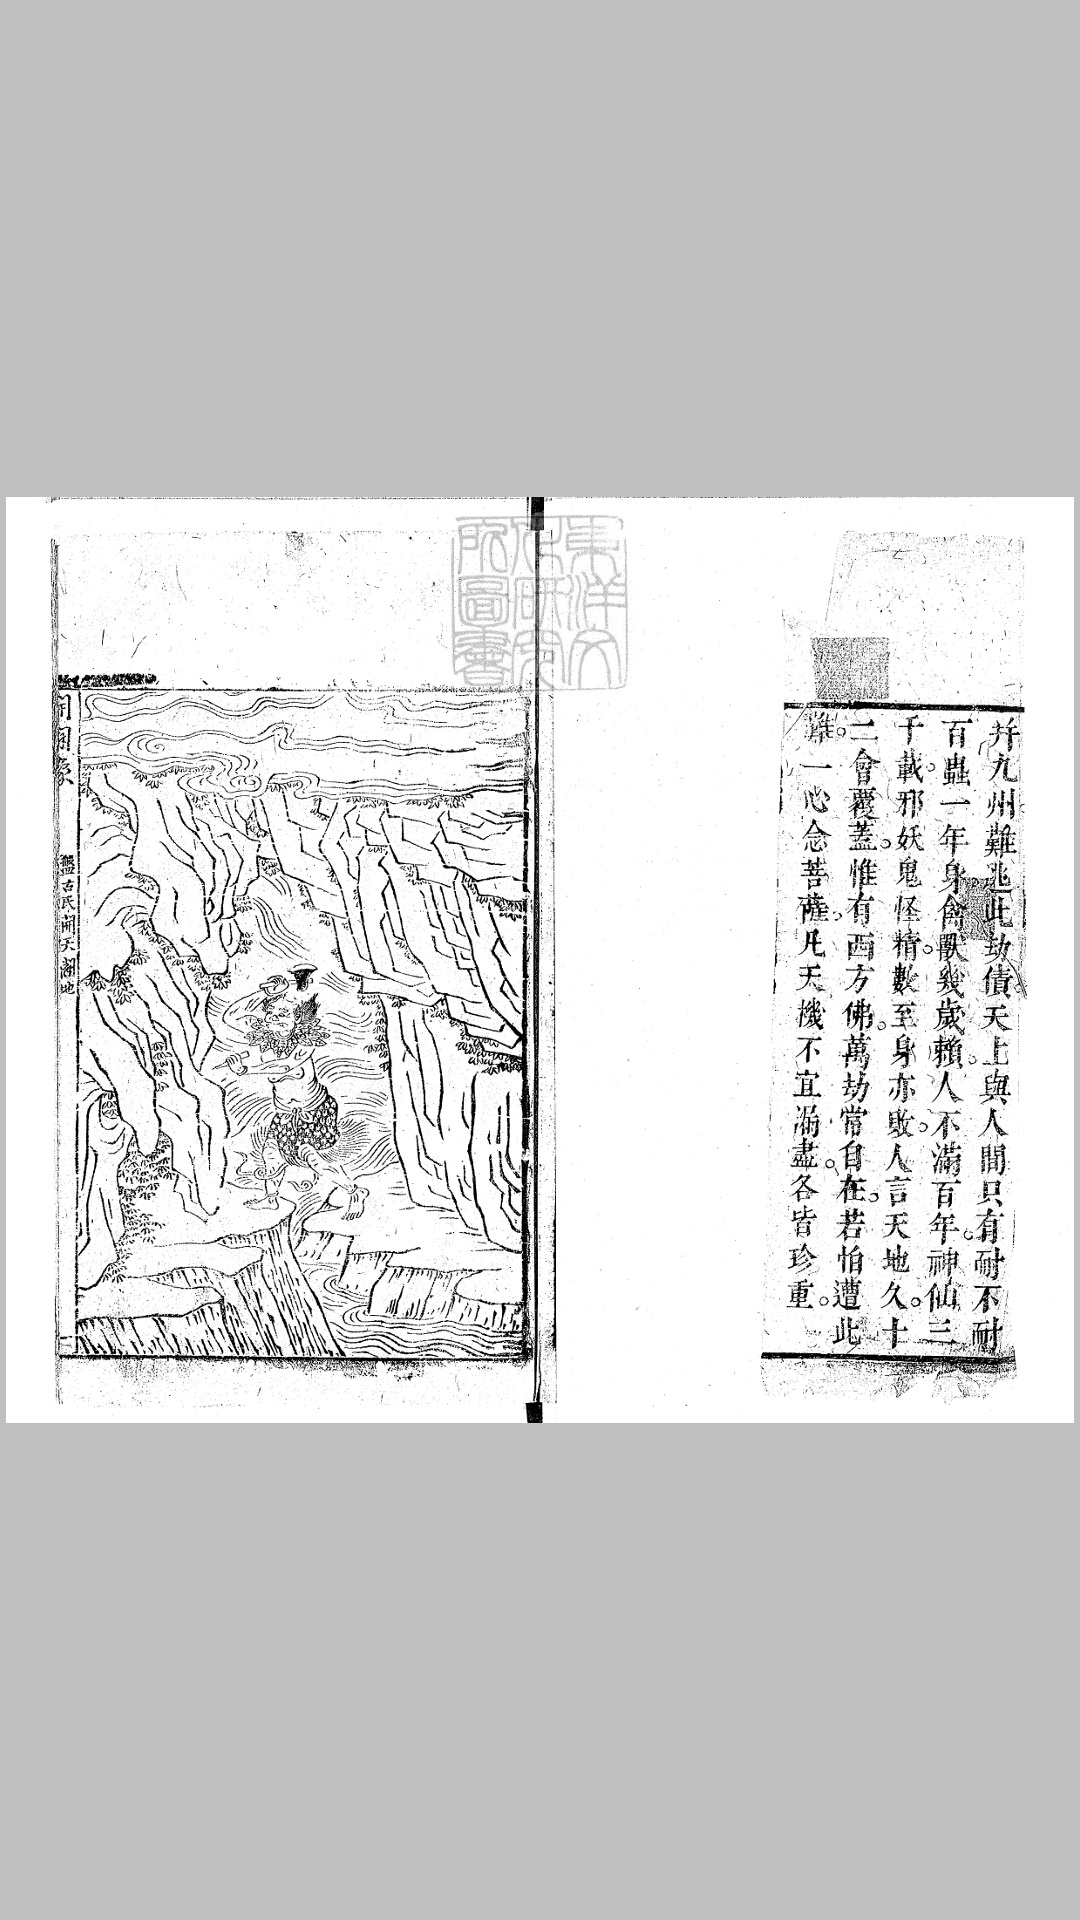 并九州難逃此劫債天上與人間只有耐不耐
百蟲一年身禽獸幾歲賴人不滿百年神仙三
千載邪妖鬼怪精數至身亦敗人言天地久十
二會覆蓋惟有西方佛萬劫常自在若怕遭此
難一心念菩薩凡天機不宜漏盡各皆珍重
東洋文
化研究
所圖書
開闢象
盤古氏開天闢地